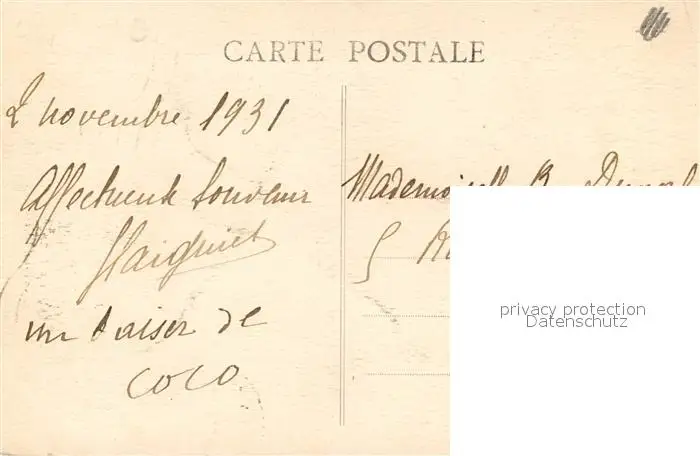 CARTE POSTALE
2 novembre 1931
Affectueux souvenir
un baiser de
COCO
Mademoiselle B.
5
privacy protection
Datenschutz